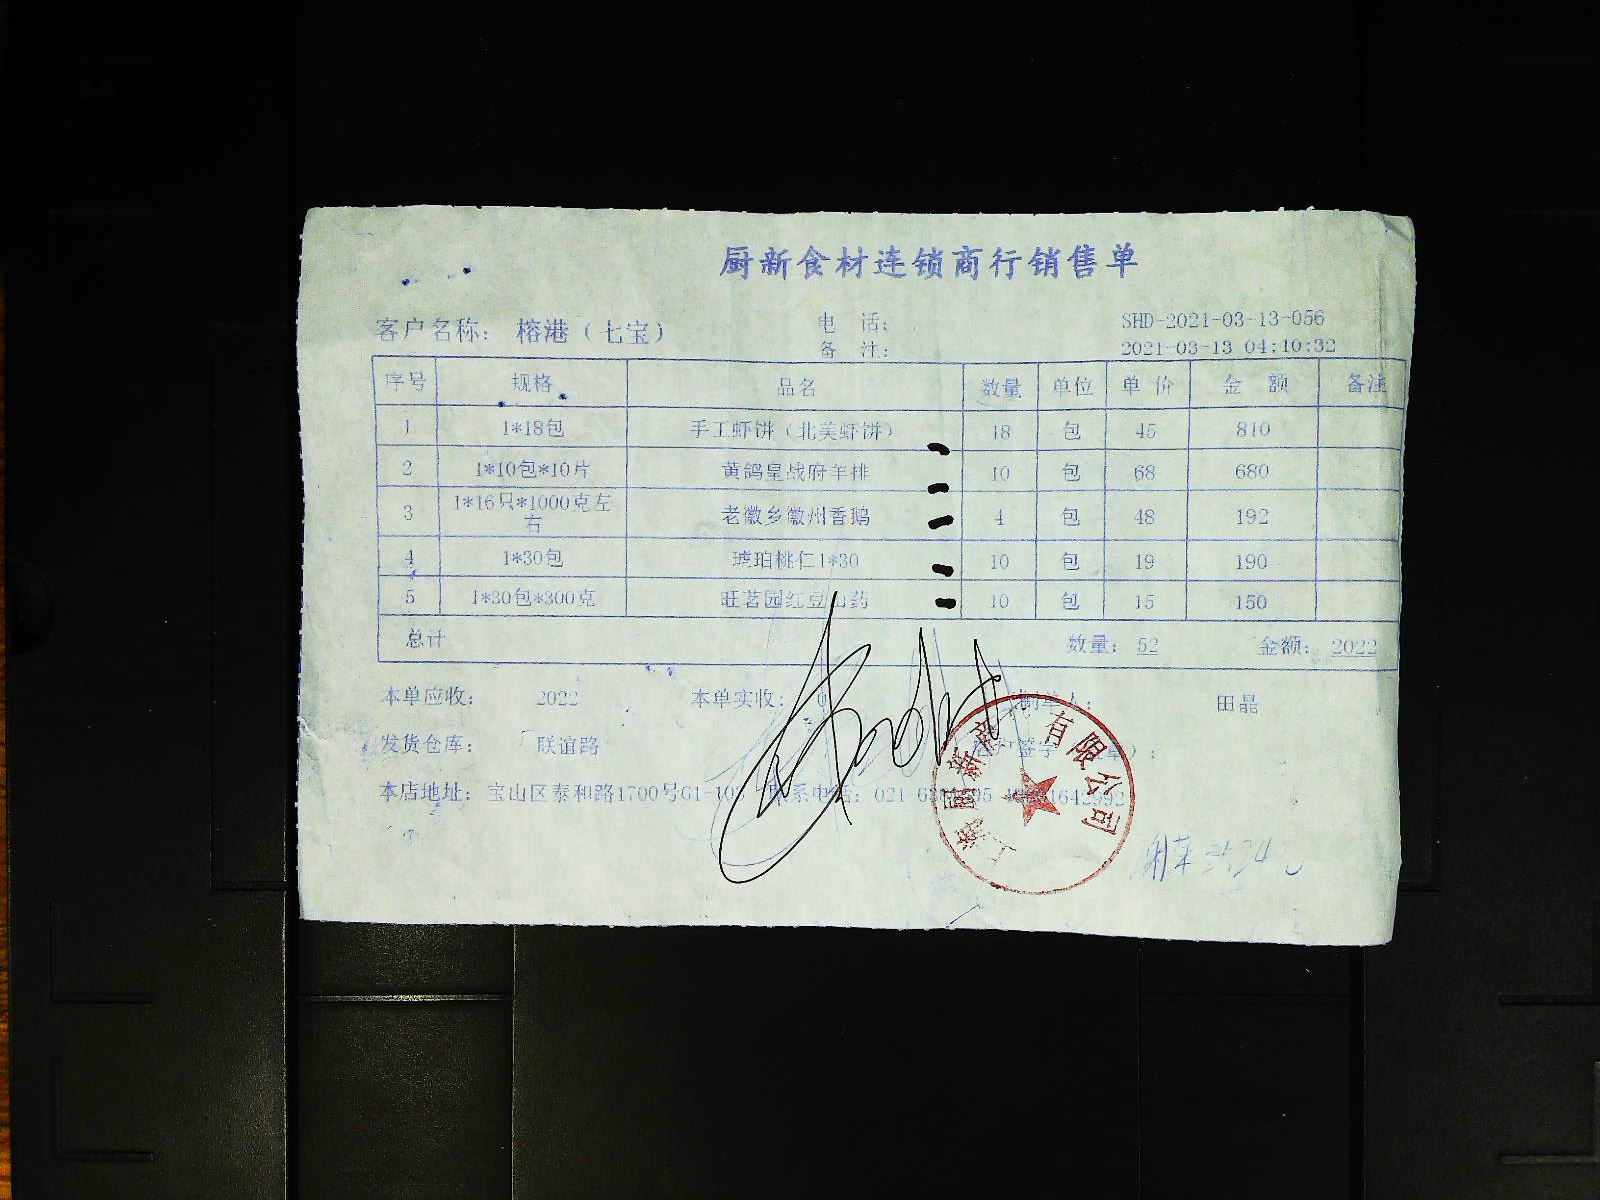 厨新食材连锁商行销售单
客户名称： 榕港（七宝） 电 话： SHD-2021-03-13-056
备 注： 2021-03-13 04:10:32
序号 规格 品名 数量 单位 单 价 金 额 备注
1 1*18包 手工虾饼（北美虾饼） 18 包 45 810
2 1*10包*10片 黄鸽皇战府羊排 10 包 68 680
3 1*16只*1000克左右 老徽乡徽州香鹅 4 包 48 192
4 1*30包 琥珀桃仁1*30 10 包 19 190
5 1*30包*300克 旺茗园红豆山药 10 包 15 150
总计 数量： 52 金额： 2022
本单应收： 2022 本单实收： 0 制单人： 田晶
发货仓库： 联谊路 签字
本店地址： 宝山区泰和路1700号G1-10 联系电话： 021-
上海厨新 有限公司